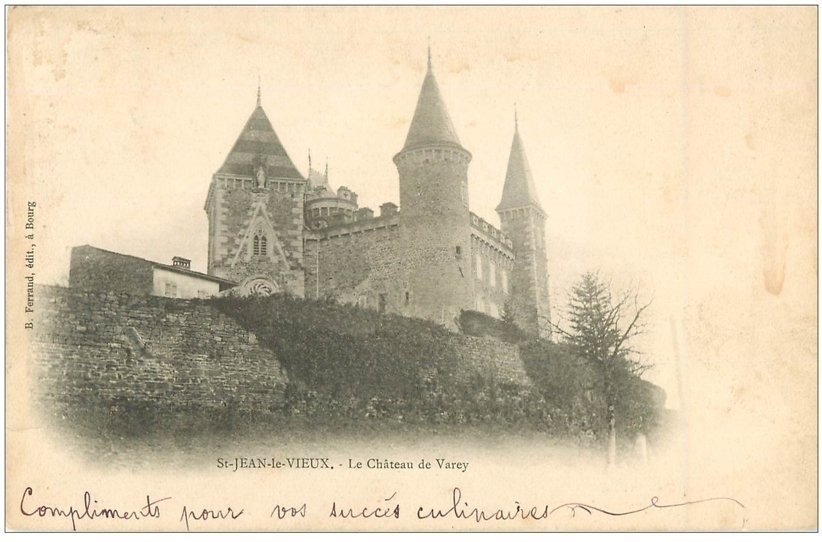 B. Ferrand, édit., à Bourg
St-JEAN-le-VIEUX. - Le Château de Varey
Compliments pour vos succés culinaires